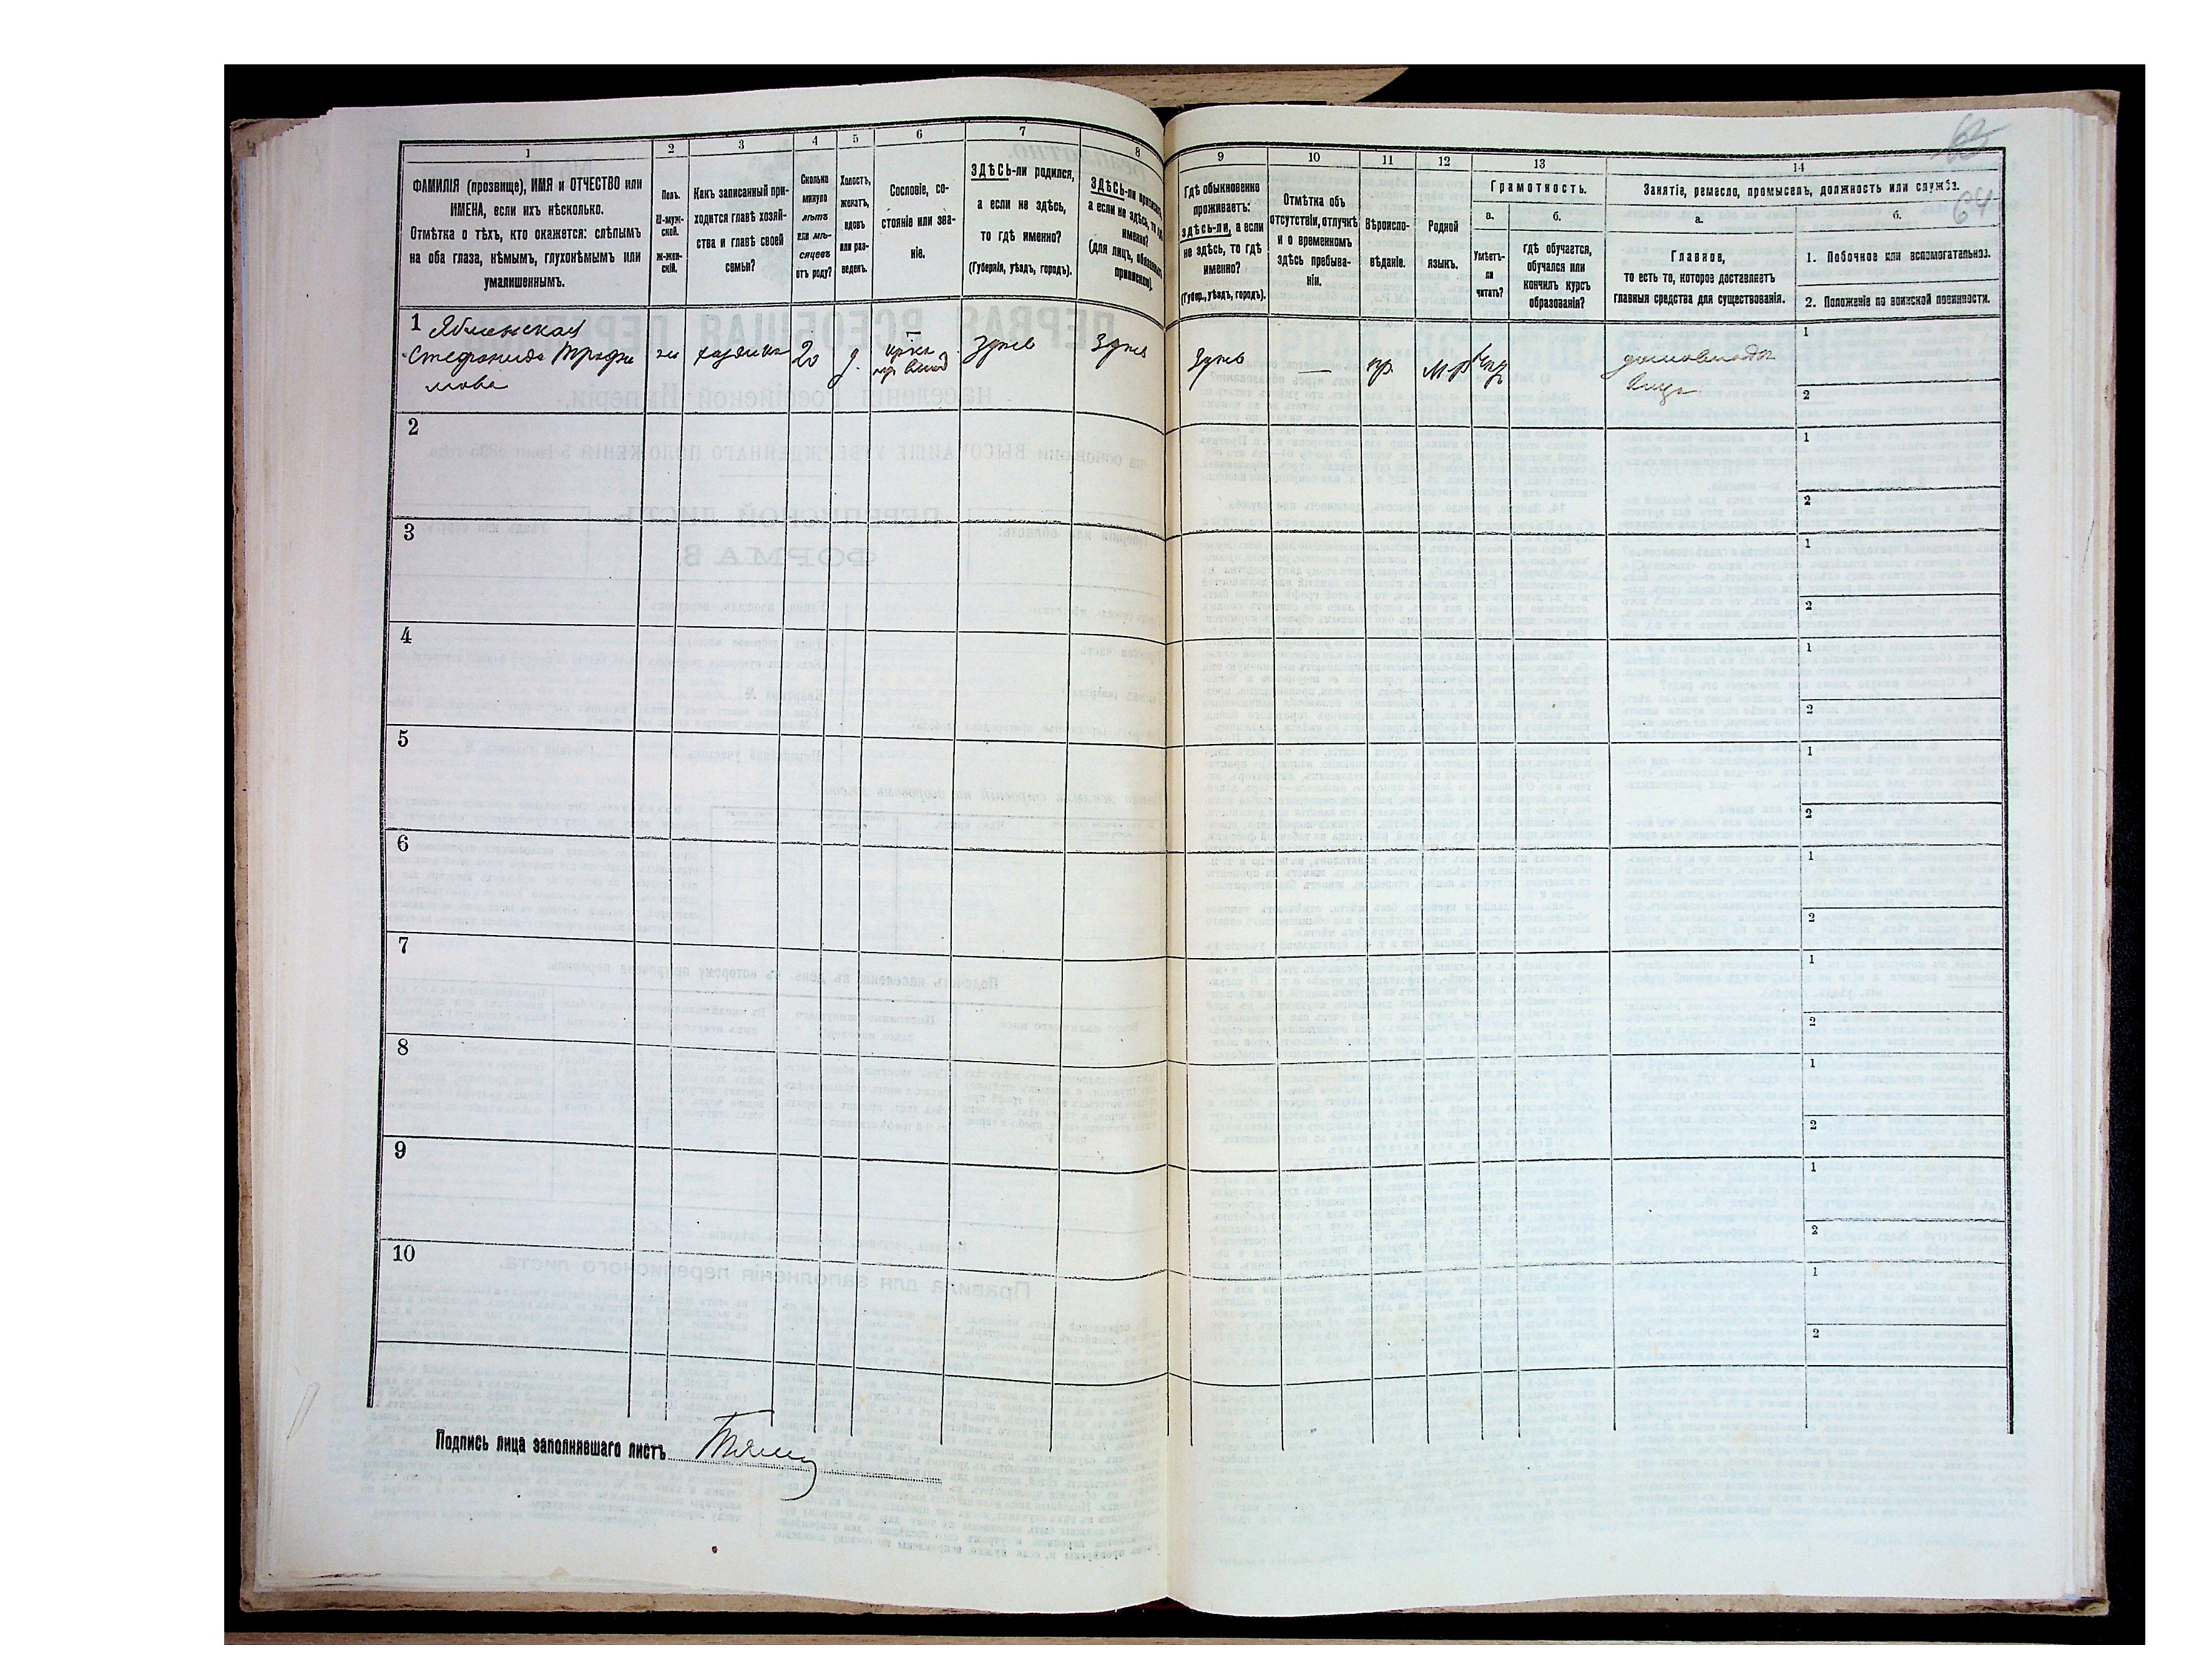 63
64
1
2
3
4
5
6
7
8
9
10
11
12
13
14
ФАМИЛІЯ (прозвище), ИМЯ и ОТЧЕСТВО или
ИМЕНА, если ихъ нѣсколько.
Отмѣтка о тѣхъ, кто окажется: слѣпымъ
на оба глаза, нѣмымъ, глухонѣмымъ или
умалишеннымъ.
Полъ.
М-муж-
ской.
ж-жен-
скій.
Какъ записанный при-
ходится главѣ хозяй-
ства и главѣ своей
семьи?
Сколько
минуло
лѣтъ
или мѣ-
сяцевъ
отъ роду?
Холостъ,
женатъ,
вдовъ
или раз-
веденъ.
Сословіе, со-
стояніе или зва-
ніе.
ЗДѢСЬ-ли родился,
а если не здѣсь,
то гдѣ именно?
(Губернія, уѣздъ, городъ).
ЗДѢСЬ-ли приписанъ,
а если не здѣсь, то гдѣ
именно?
(для лицъ, обязанныхъ
припискою).
Гдѣ обыкновенно
проживаетъ:
здѣсь-ли, а если
не здѣсь, то гдѣ
именно?
(Губер., уѣздъ, городъ).
Отмѣтка объ
отсутствіи, отлучкѣ
и о временномъ
здѣсь пребыва-
ніи.
Вѣроиспо-
вѣданіе.
Родной
языкъ.
Грамотность.
а.
б.
Умѣетъ-
ли
читать?
гдѣ обучается,
обучался или
кончилъ курсъ
образованія?
Занятіе, ремесло, промыселъ, должность или служба.
а.
б.
Главное,
то есть то, которое доставляетъ
главныя средства для существованія.
1. Побочное или вспомогательное.
2. Положеніе по воинской повинности.
1
Стефанида Трофи
мова
ж
хозяйка
20
Здѣсь
Здѣсь
Здѣсь
—
пр.
1
2
2
1
2
3
1
2
4
1
2
5
1
2
6
1
2
7
1
2
8
1
2
9
1
2
10
1
2
Подпись лица заполнявшаго листъ